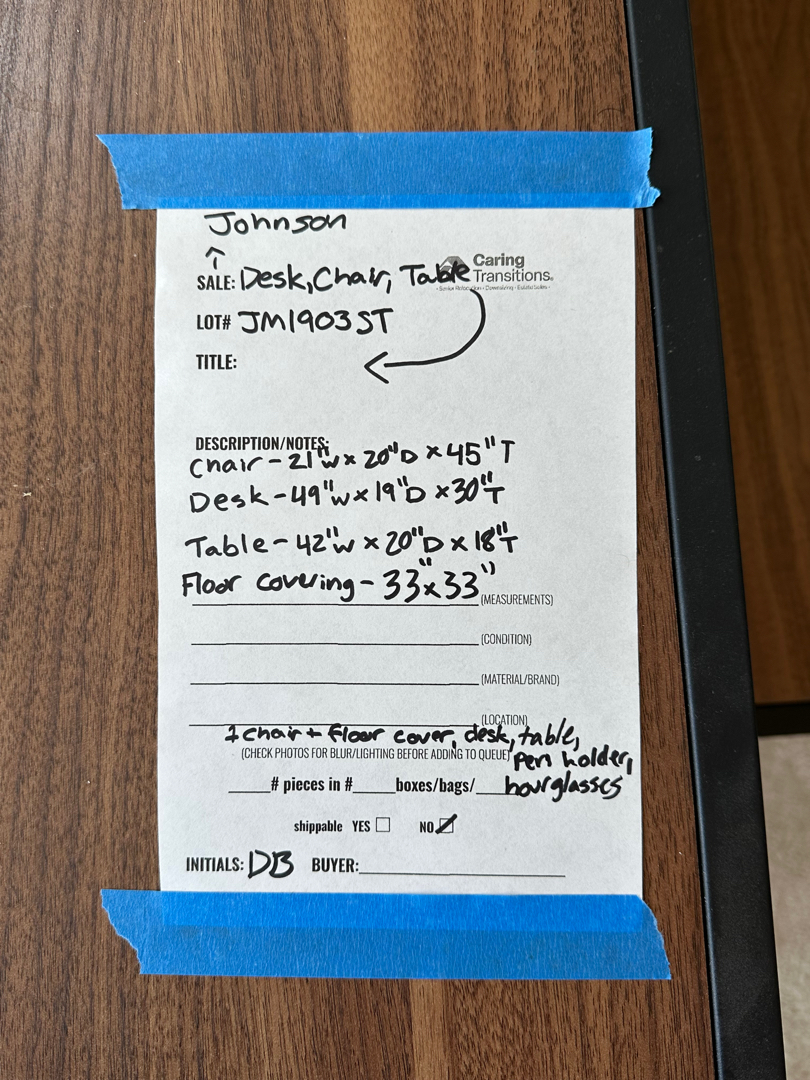 Johnson
SALE: Desk, Chair, Table
Caring
Transitions®
LOT# JM1903ST
TITLE:
DESCRIPTION/NOTES:
Chair - 21"W x 20"D x 45"T
Desk - 49"W x 19"D x 30"T
Table - 42"W x 20"D x 18"T
Floor covering - 33"x33"
(MEASUREMENTS)
(CONDITION)
(MATERIAL/BRAND)
(LOCATION)
1 chair + floor cover, desk, table,
(CHECK PHOTOS FOR BLUR/LIGHTING BEFORE ADDING TO QUEUE) pen holder,
# pieces in # boxes/bags/ hourglasses
shippable YES NO
INITIALS: DB BUYER: